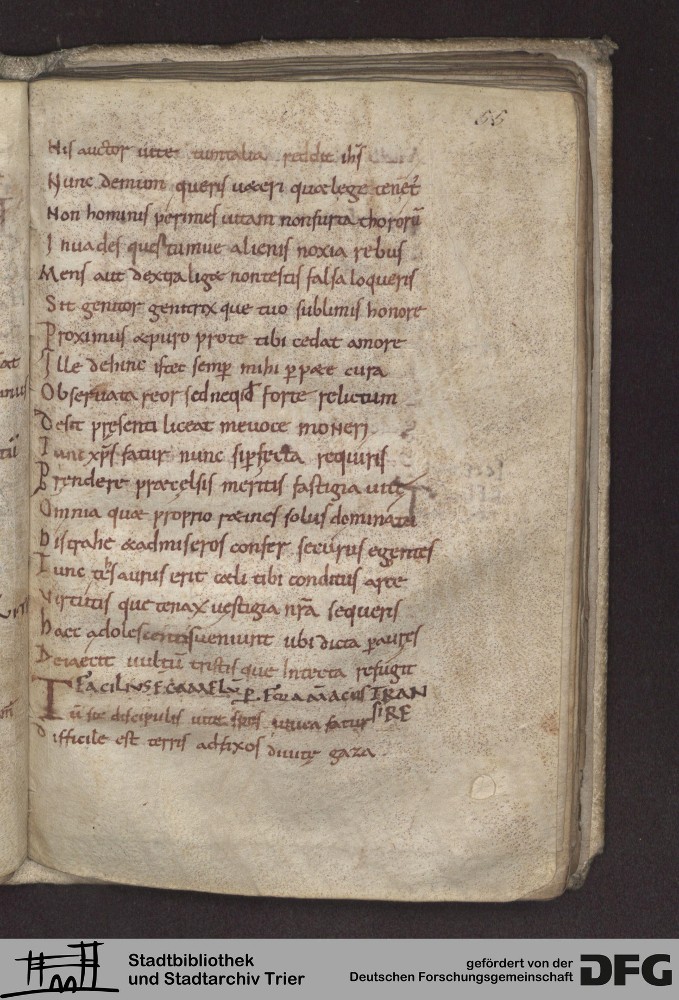 55
His auctor uite tum talia reddit ihs̄
Nunc demum queris uaeri quae lege tenet̄
Non hominis perimes uitam non furta thororū
Inuades questumue alienis noxia rebus
Mens aut dextra liget non testis falsa loqueris
Sit genitor genitrix que tuo sublimis honore
Proximus & puro pro te tibi cedat amore
Ille dehinc istec semp̄ mihi p̱pete cura
Obseruata reor sed nequid forte relictum
Desit presenti liceat me uoce moneri
Tunc xp̄s fatur nunc si p̱fecta requiris
Prendere praecelsis meritis fastigia uite
Omnia quae proprio r&ines solus dominatu
Distrahe & ad miseros confer securus egentes
Tunc tesaurus erit caeli tibi conditus arce
Virtutis que tenax uestigia nr̄a sequeris
Haec adolescentis ueniunt ubi dicta p̱ aures
Deiaecit uultū tristis que lntecta refugit
FACILIUS Ē CAMELŪ P̱ FORAMĀ ACUS TRAN
SIRE
Tū sic discipulis uite spes unica fatur
Difficile est terris adfixos diuite gaza
Stadtbibliothek
und Stadtarchiv Trier
gefördert von der
Deutschen Forschungsgemeinschaft
DFG